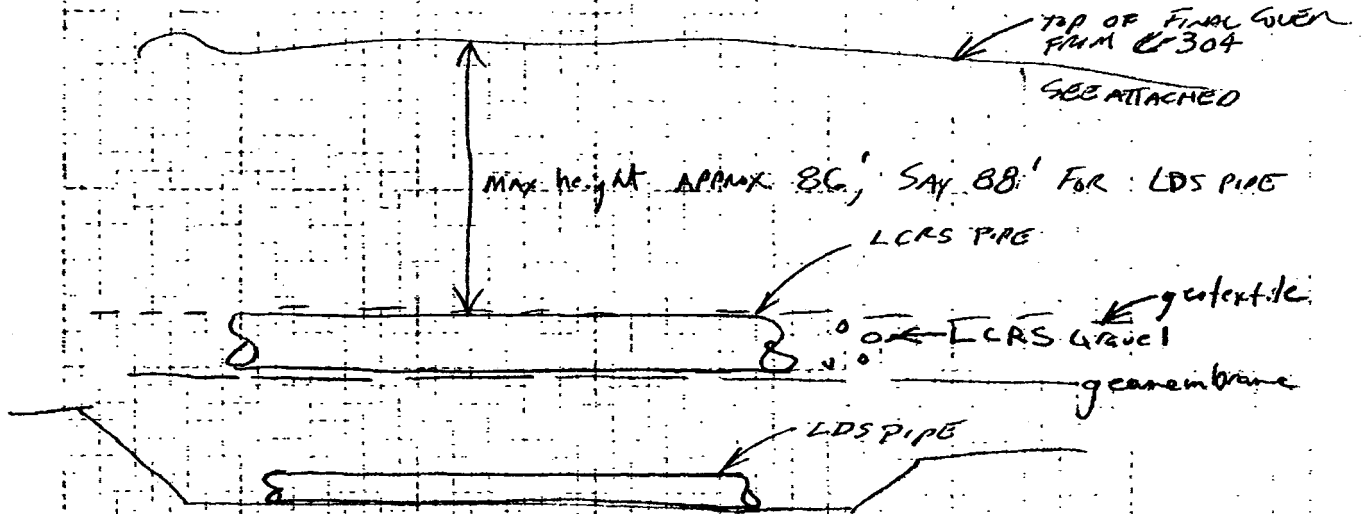 TOP OF FINAL COVER
FROM 304
SEE ATTACHED
MAX height APPROX 86', SAY 88' FOR LDS PIPE
LCRS PIPE
geotextile
LCRS Gravel
geomembrane
LDS PIPE